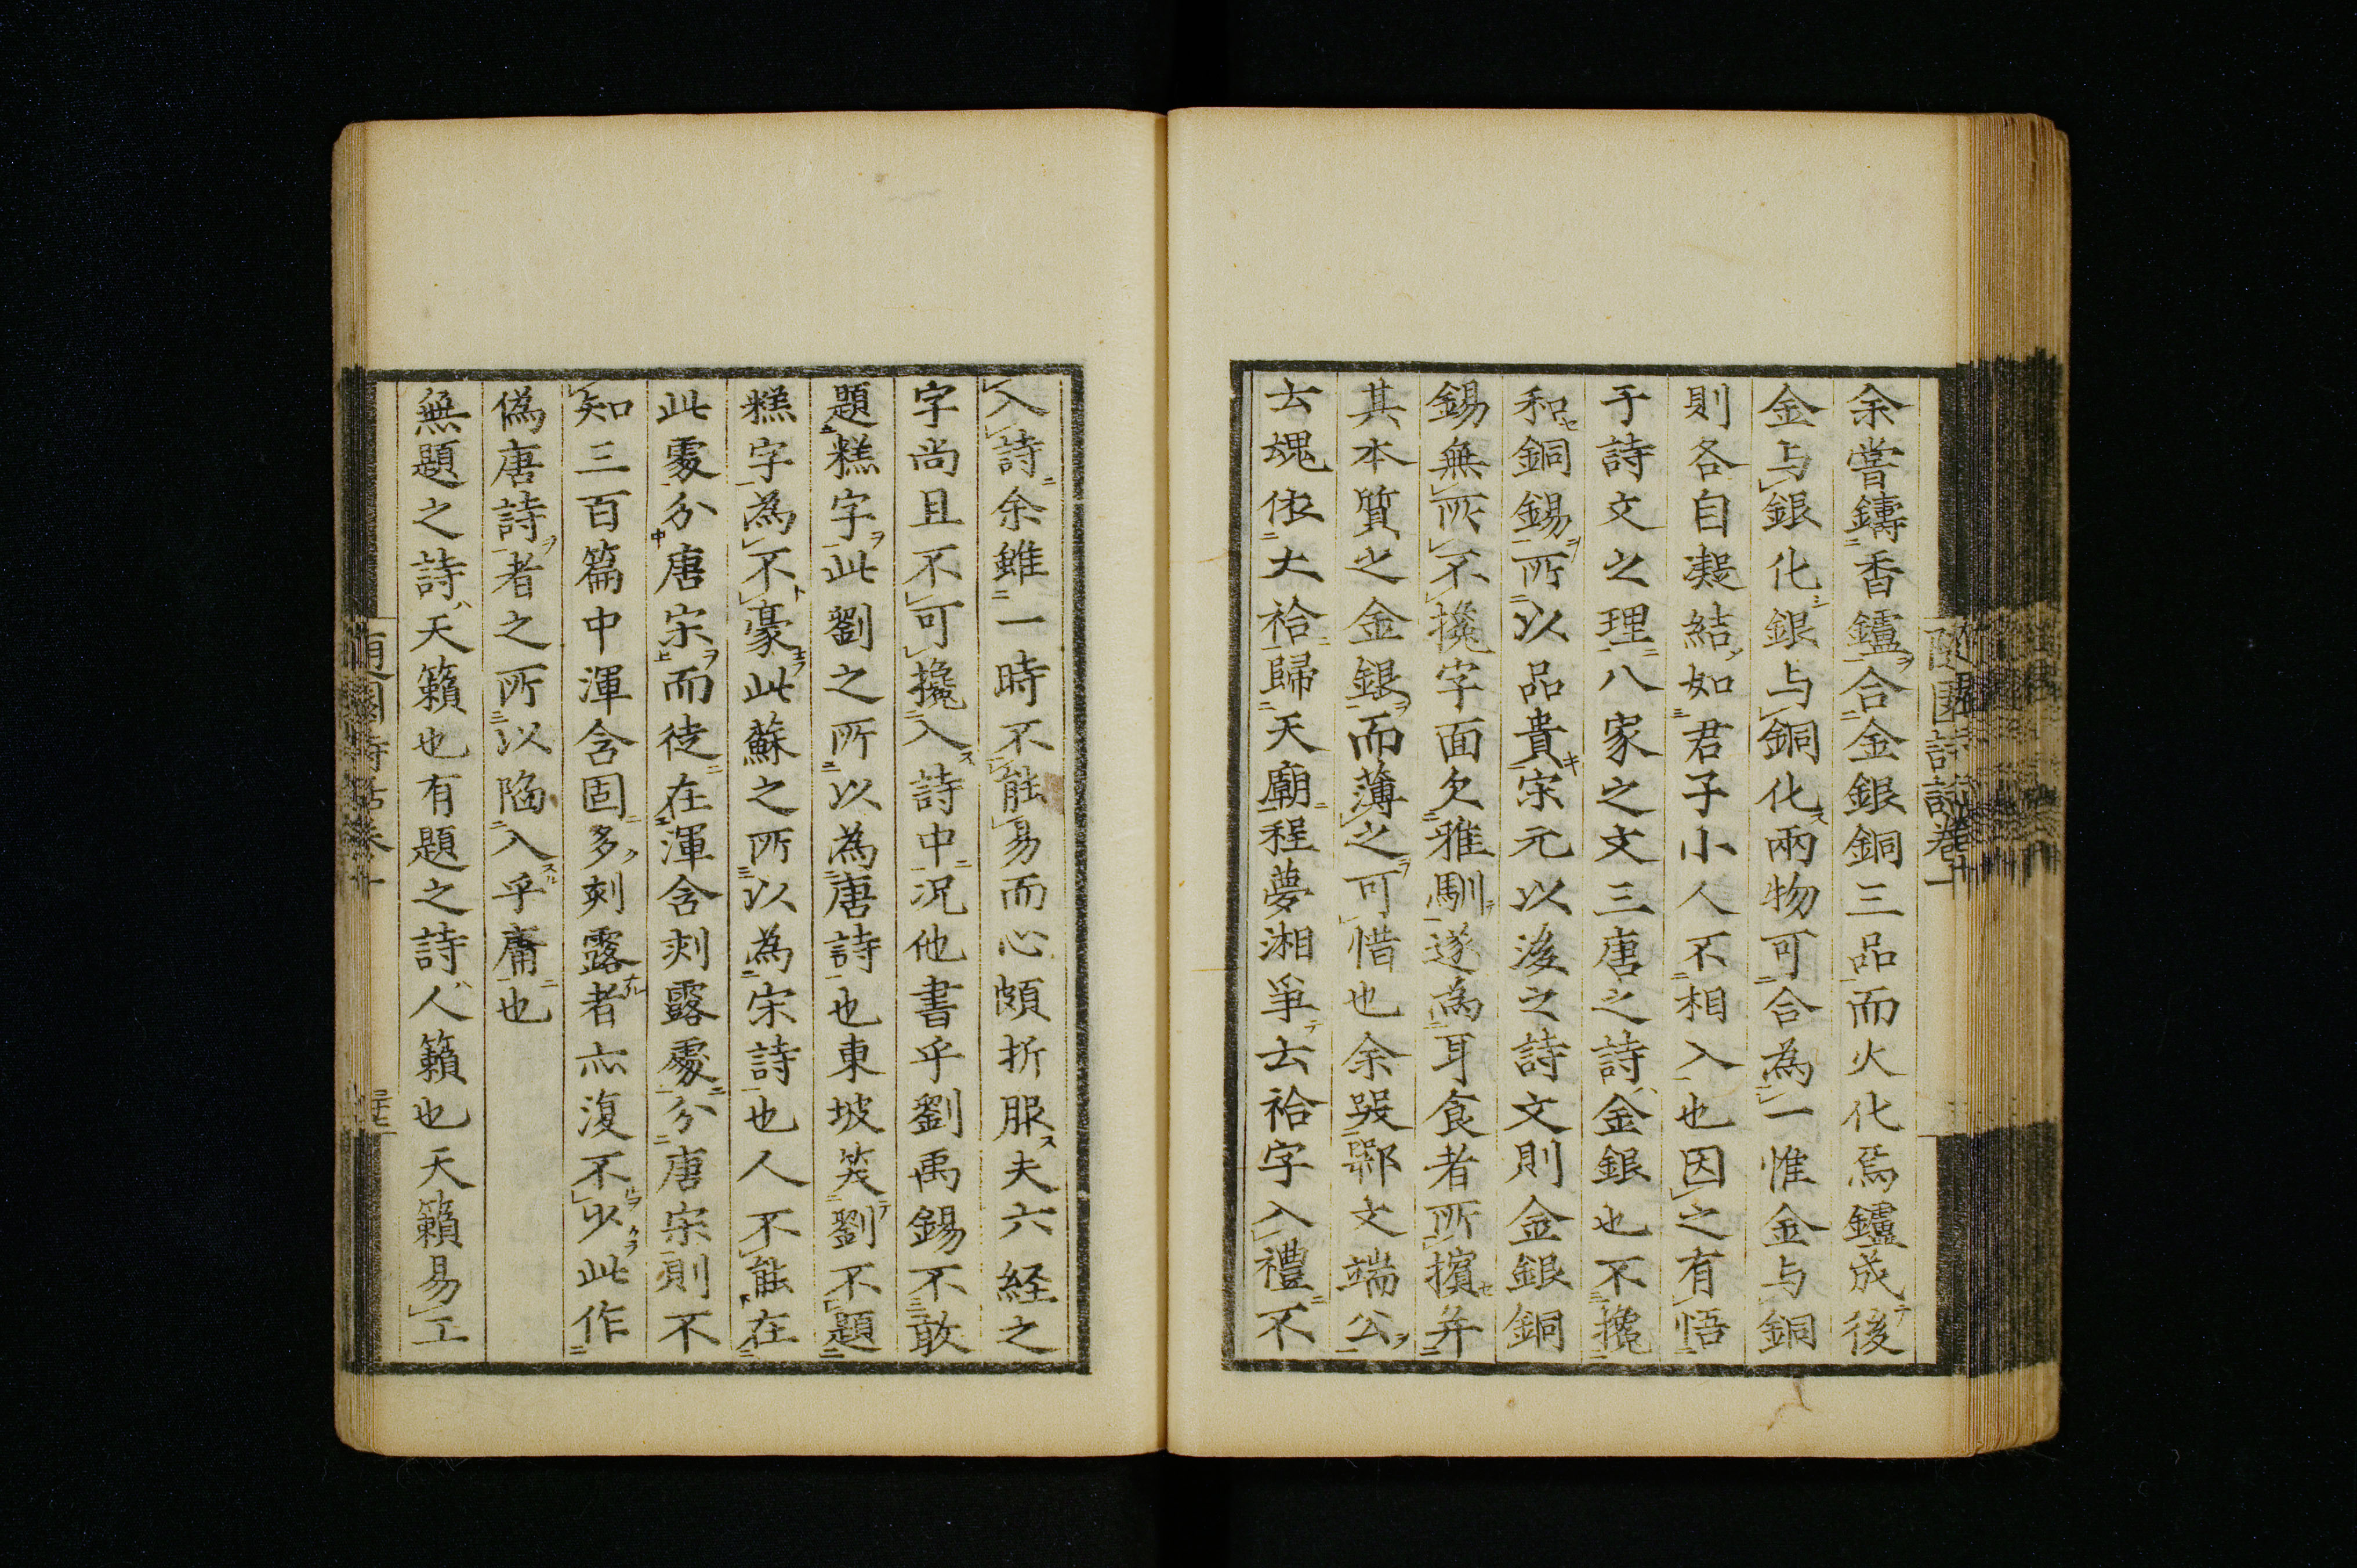 余嘗鑄香鑪合金銀銅三品而火化焉鑪成後
金与銀化銀与銅化兩物可合為一惟金与銅
則各自凝結如君子小人不相入也因之有悟
于詩文之理八家之文三唐之詩金銀也不攙
和銅錫所以品貴宋元以後之詩文則金銀銅
錫無所不攙字面欠雅馴遂為耳食者所擯并
其本質之金銀而薄之可惜也余哭鄂文端公
云魂依大祫歸天廟程夢湘爭云祫字入禮不
入詩余雖一時不能易而心頗折服夫六経之
字尚且不可攙入詩中况他書乎劉禹錫不敢
題糕字此劉之所以為唐詩也東坡笑劉不題
糕字為不豪此蘇之所以為宋詩也人不能在
此處分唐宋而徒在渾含刻露處分唐宋則不
知三百篇中渾含固多刻露者亦復不少此作
偽唐詩者之所以陷入乎庸也
無題之詩天籟也有題之詩人籟也天籟易工
隨園詩話卷十